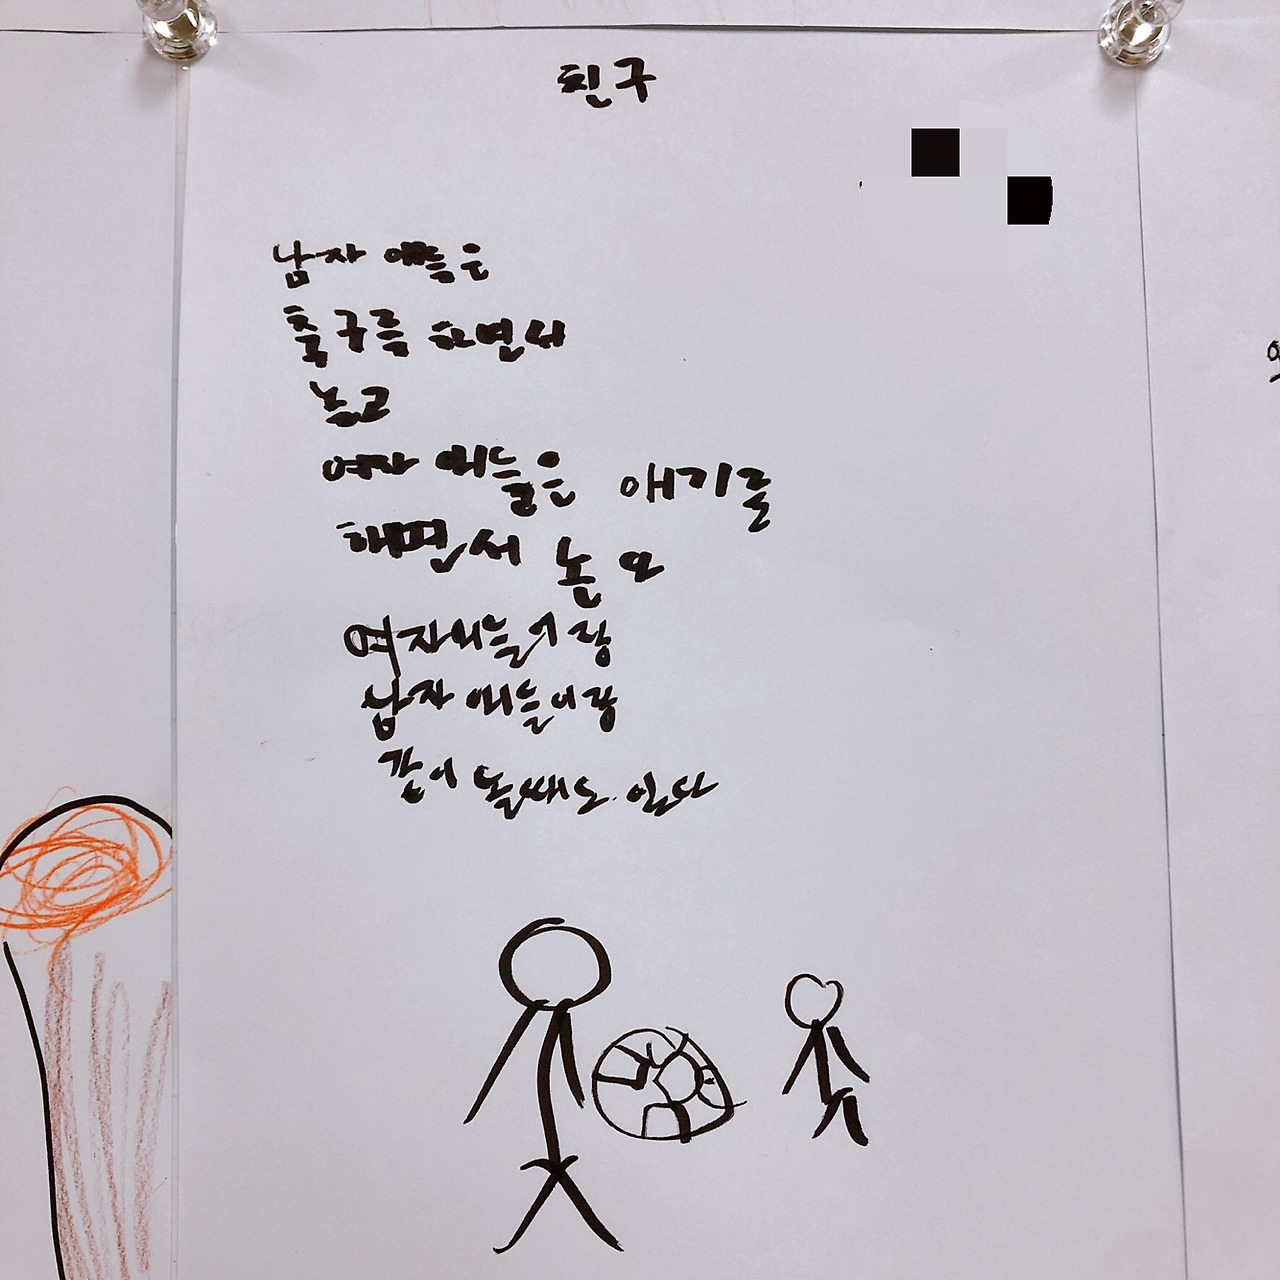 친구
남자 애들은
축구를 하면서
놀고
여자 애들은 애기를
해면서 논 요
여자애들이랑
남자 애들이랑
같이 놀때도 있다